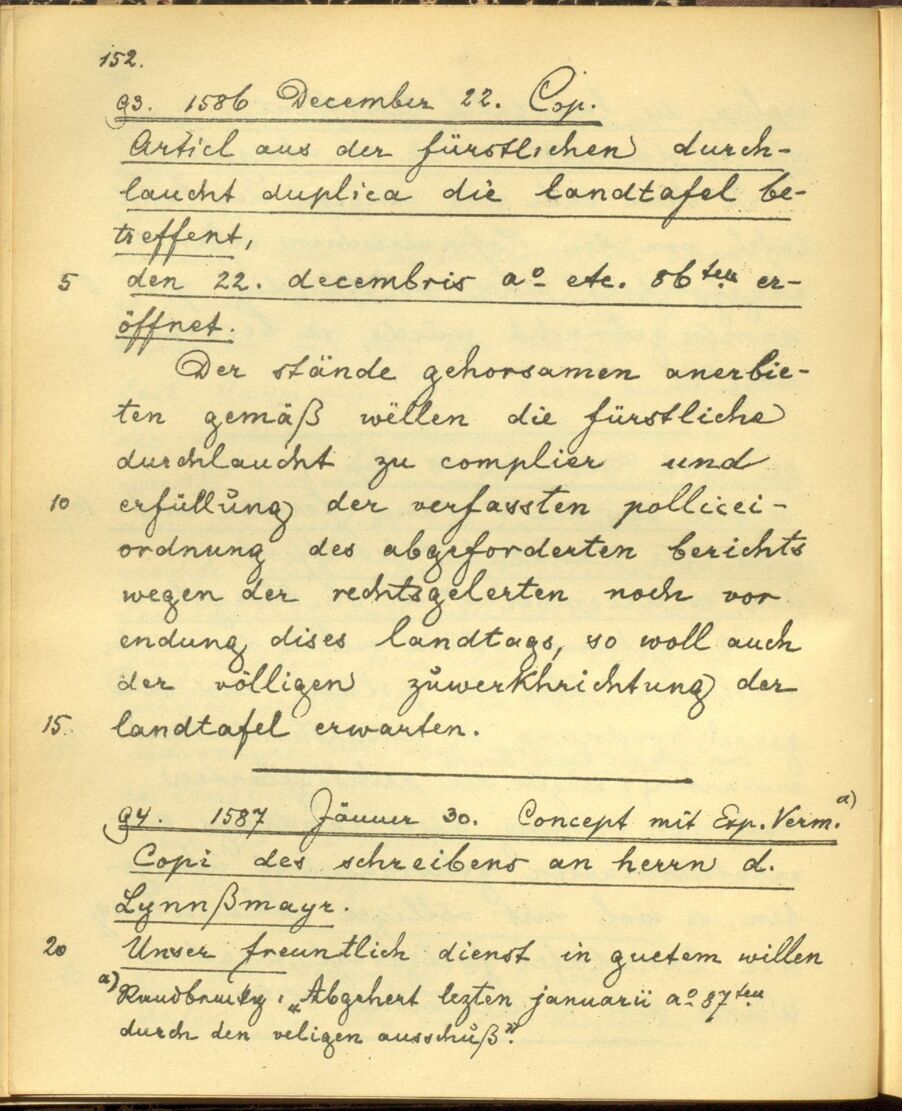 152.
93. 1586 December 22. Cop.
Articl aus der fürstlichen durch-
laucht duplica die landtafel be-
treffent,
5 den 22. decembris aº etc. 86ten er-
öffnet.
Der stände gehorsamen anerbie-
ten gemäß wëllen die fürstliche
durchlaucht zu complier und
10 erfüllung der verfassten pollicei-
ordnung des abgeforderten berichts
wegen der rechtsgelerten noch vor
endung dises landtags, so woll auch
der völligen zuwerkhrichtung der
15. landtafel erwarten.
94. 1587 Jänner 30. Concept mit Exp. Verm. a)
Copi des schreibens an herrn d.
Lynnßmayr.
20 Unser freuntlich dienst in guetem willen
a) Randbemerkg: „Abgehert lezten januarii aº 87ten
durch den veligen ausschuß".